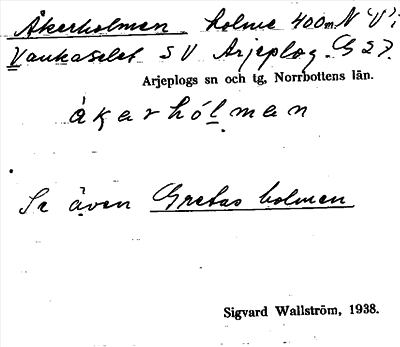 Åkerholmen holme 400m N "V" i
Vaukaselet SV Arjeplog. G 27.
Arjeplogs sn och tg, Norrbottens län.
åkarhólman
Se även Gretas holmen
Sigvard Wallström, 1938.